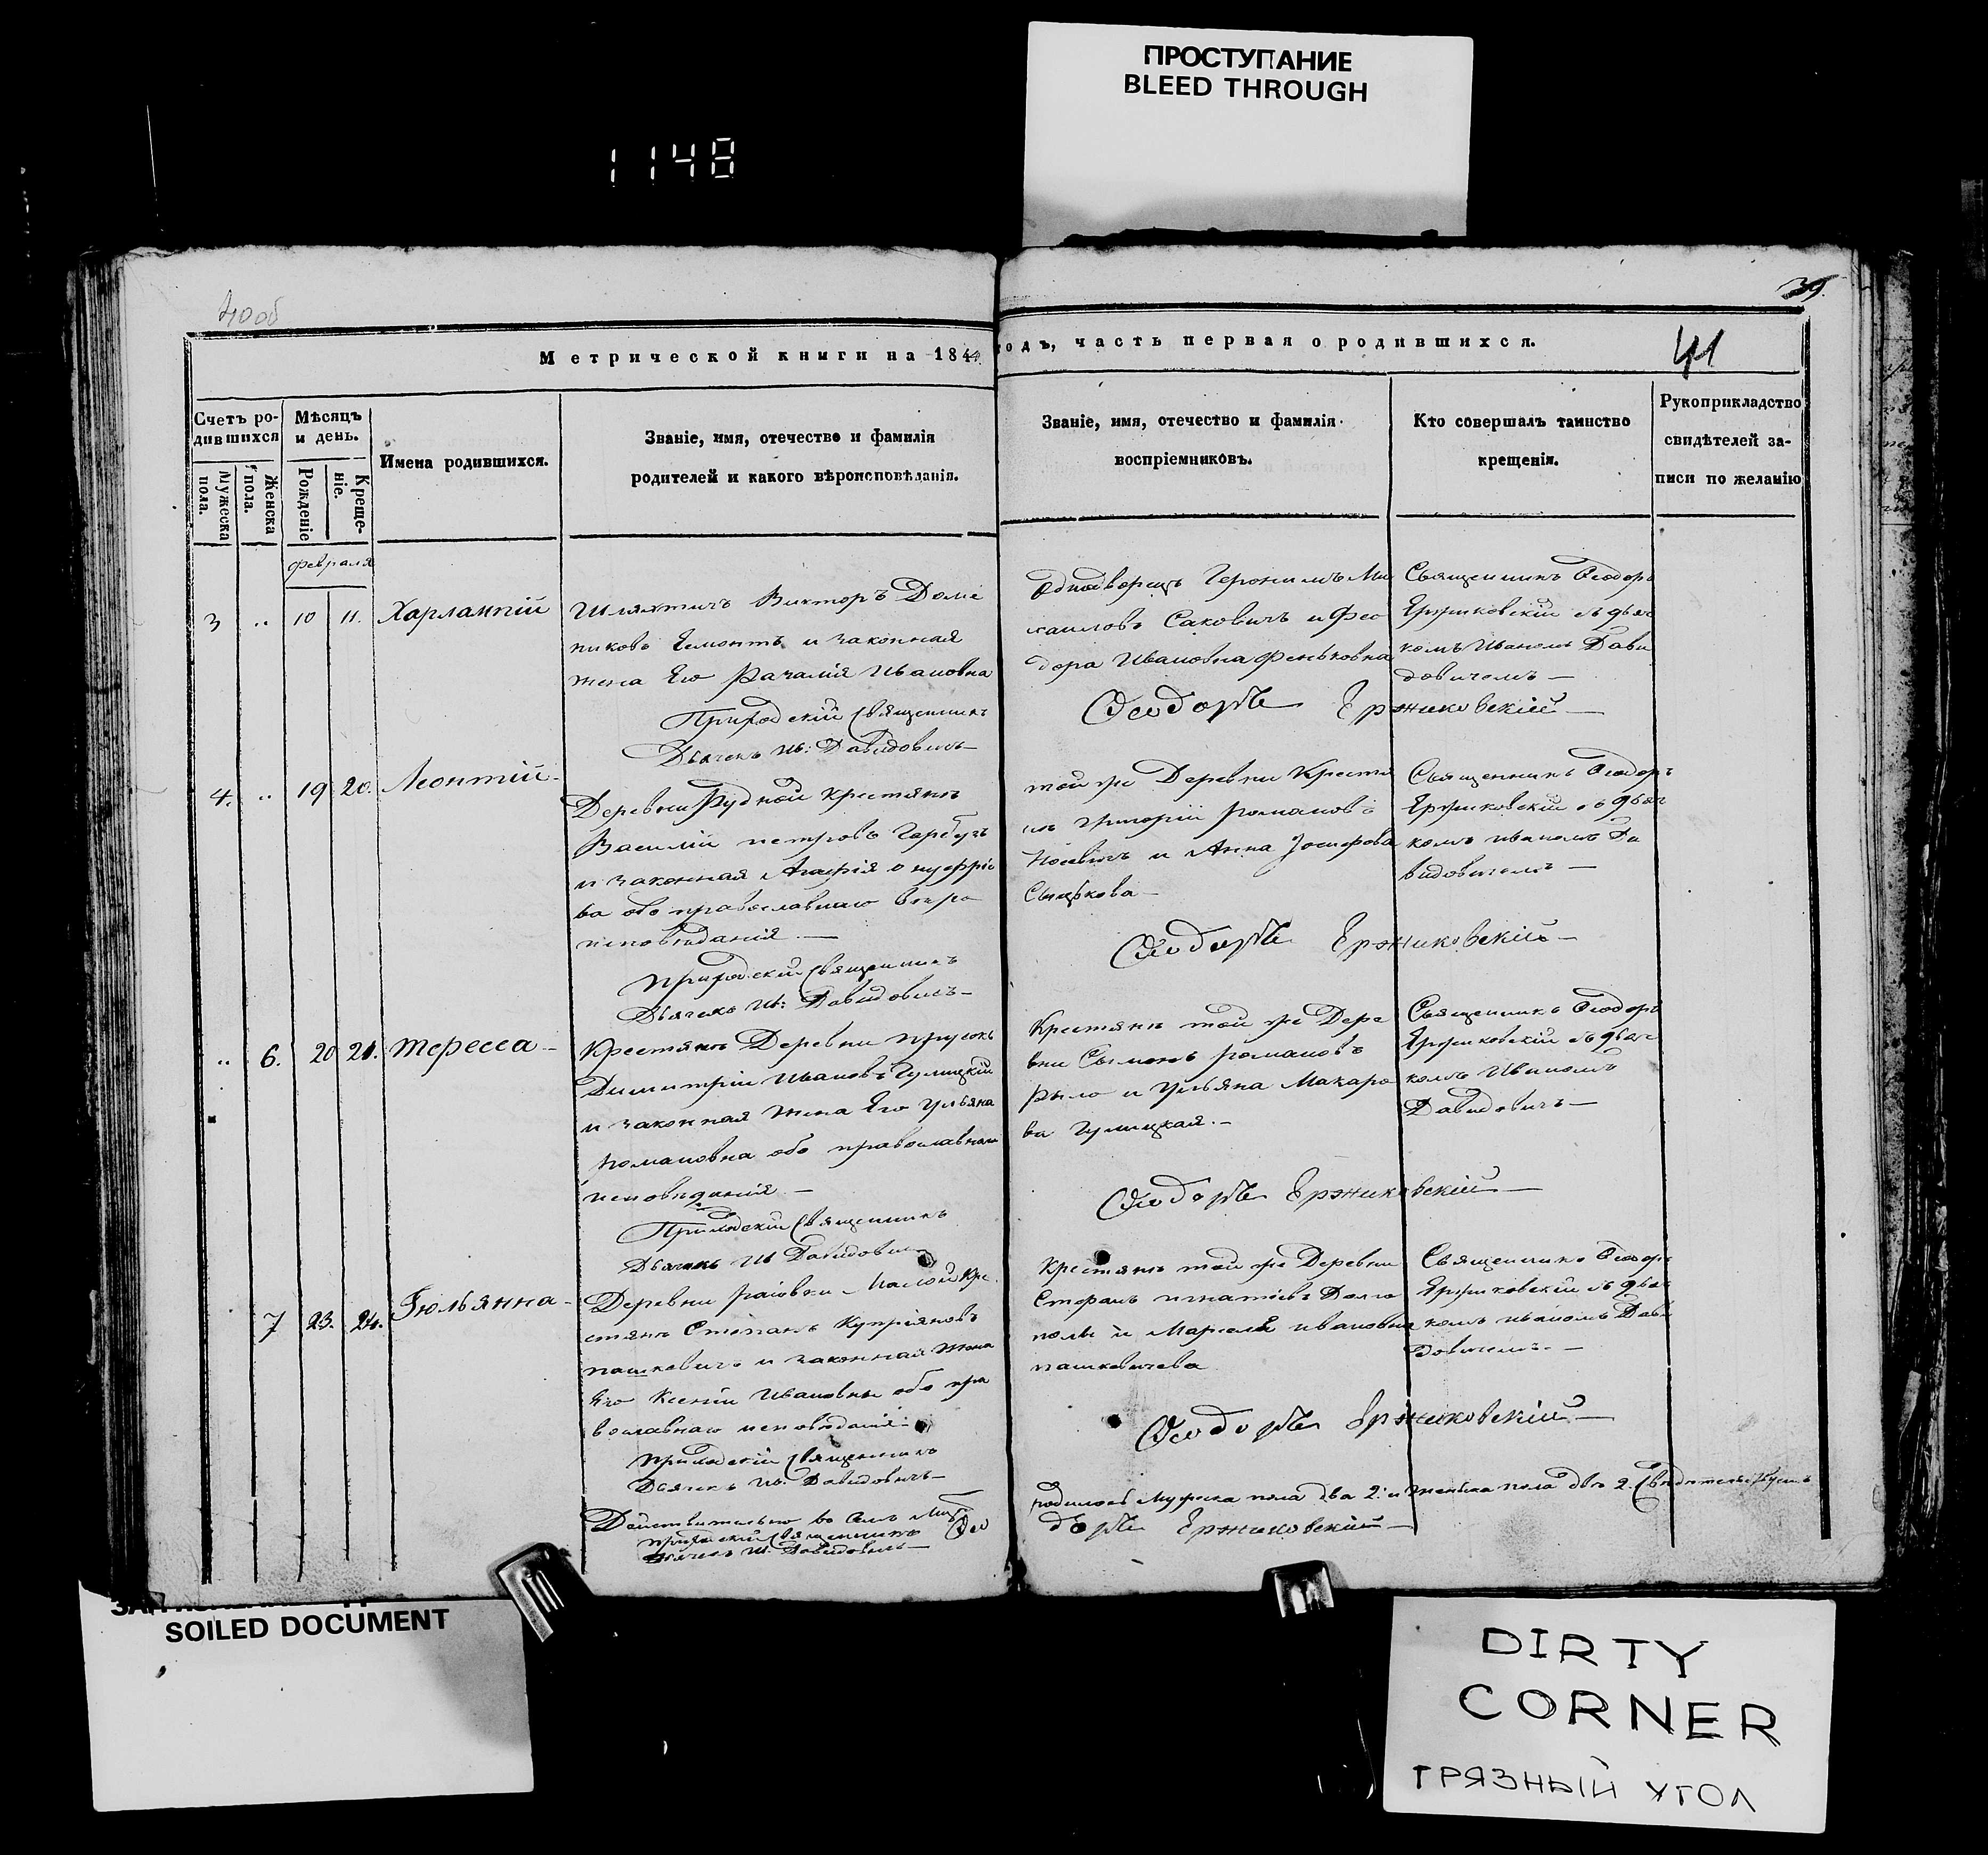 ПРОСТУПАНИЕ
BLEED THROUGH
1148
40об
39.
41
Метрической книги на 1844 годъ, часть первая о родившихся.
Счетъ родившихся
Мужеска пола.
Женска пола.
Мѣсяцъ и день.
Рожденіе
Крещеніе.
Имена родившихся.
Званіе, имя, отечество и фамилія
родителей и какого вѣроисповѣданія.
Званіе, имя, отечество и фамилія
воспріемниковъ.
Кто совершалъ таинство
крещенія.
Рукоприкладство
свидѣтелей за-
писи по желанію
февраля
3 .. 10 11. Харлампій
Шляхтичъ Викторъ Доми
никовъ и законная
жена Его Ивановна
Приходскій Священникъ
Дьячекъ Ив: Давидовичъ
Однодворецъ Героnимъ Ми
хаиловъ Саковичъ и Фео
дора Ивановна Феньковна
Священникъ Феодоръ
Ержиковскій съ дьяч
комъ Иваномъ Дави
довичемъ —
Феодоръ Ержиковскій —
4. .. 19 20. Леонтій
Деревни Рудной Крестьянинъ
Василій Петровъ Гарбузъ
и законная Агафія Онуфріе
ва обо православнаго вѣро
исповѣданія —
Приходскій Священникъ
Дьячекъ Ив: Давидовичъ —
той же Деревни Крестья
нъ Григорій Романовъ
и Анна Іосифова
Священникъ Феодоръ
Ержиковскій съ дьяч
комъ иваномъ Да
видовичемъ —
Феодоръ Ержиковскій —
.. 6. 20 21. Тересса —
Крестьянъ Деревни Прусокъ
Димитрій Ивановъ Гулицкій
и законная жена Его Ульяна
Романовна обо православнаго
исповѣданія —
Приходскій Священникъ
Дьячекъ Ив Давидовичъ
Крестьянъ той же Дере
вни Сымонъ Романовъ
Рыло и Ульяна Макаро
ва Гулицкая. —
Священникъ Феодоръ
Ержиковскій съ дьяч
комъ Иваномъ
Давидовичъ —
Феодоръ Ержиковскій —
7 23. 24. Гюльянна —
Деревни Кре
стьянъ Степанъ Купріяновъ
пашкевичъ и законная жена
Его Ксенія Ивановна обо пра
вославнаго исповѣданія
Приходскій Священникъ
Дьячекъ Ив. Давидовичъ —
Крестьянъ той же Деревни
игнатіевъ
и ивановна
пашкевичева
Священникъ Феодоръ
Ержиковскій съ дьяч
комъ иваномъ Дави
довичемъ. —
Феодоръ Ержиковскій —
Действительно во
родилось Мужеска пола два 2. и женска пола две 2. Свидетельствуемъ
приходскій Священникъ Фео
доръ Ержиковскій —
Дьячекъ Ив. Давидовичъ —
SOILED DOCUMENT
DIRTY
CORNER
ГРЯЗНЫЙ УГОЛ